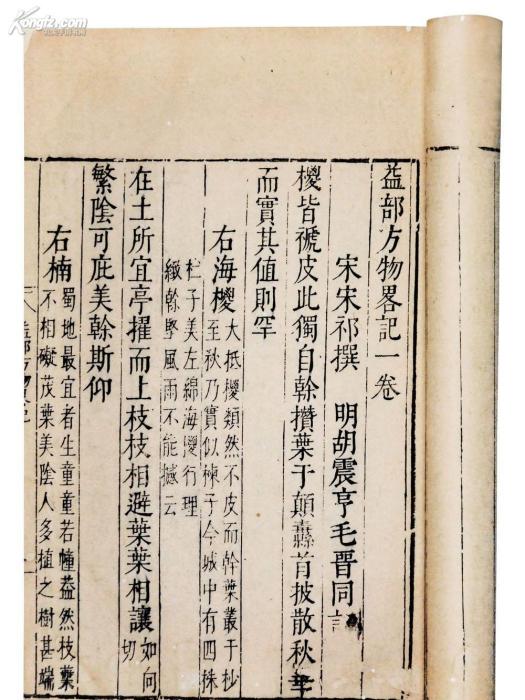 Kongfz.com
益部方物畧記一卷
宋宋祁撰 明胡震亨毛晉同
椶皆褫皮此獨自榦攢葉于顛纛首披散秋華
而實其值則罕
右海椶 大抵椶類然不皮而幹葉叢于杪
至秋乃實似楝子今城中有四株
杜子美左綿海椶行理
緻幹堅風雨不能撼云
在土所宜亭擢而上枝枝相避葉葉相讓 如何
切
繁陰可庇美榦斯仰
右楠 蜀地最宜者生童童若幢葢然枝葉
不相礙茂葉美陰人多植之樹甚端